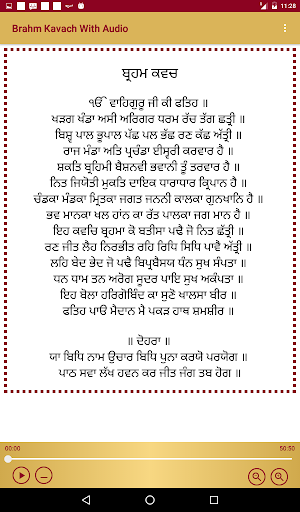 11:28
Brahm Kavach With Audio
ਬ੍ਰਹਮ ਕਵਚ
ੴ ਵਾਹਿਗੁਰੂ ਜੀ ਕੀ ਫਤਿਹ ॥
ਖੜਗ ਖੰਡਾ ਅਸੀ ਅਰਿਗਰ ਧਰਮ ਰੱਚ ਤੱਗ ਛਤ੍ਰੀ ॥
ਬਿਸ੍ਵ ਪਾਲ ਭੂਪਾਲ ਪੱਛ ਪਲ ਭੱਛ ਰਣ ਕੱਛ ਅੱਤ੍ਰੀ ॥
ਰਾਜ ਮੰਡਾ ਅਤਿ ਪ੍ਰਚੰਡਾ ਈਸ੍ਵਰੀ ਕਰਵਾਰ ਹੈ ॥
ਸ਼ਕਤਿ ਬ੍ਰਹਿਮੀ ਬੈਸ਼ਨਵੀ ਭਵਾਨੀ ਤੂੰ ਤਰਵਾਰ ਹੈ ॥
ਨਿਤ ਜਿਯੋਤੀ ਮੁਕਤਿ ਦਾਇਕ ਧਾਰਾਧਾਰ ਕ੍ਰਿਪਾਨ ਹੈ ॥
ਚੰਡਕਾ ਮੰਡਕਾ ਮ੍ਰਿਤਕਾ ਜਗਤ ਜਨਨੀ ਕਾਲਕਾ ਗੁਨਖਾਨਿ ਹੈ ॥
ਭਵ ਮਾਨਕਾ ਖਲ ਹਾਂਨ ਕਾ ਰੱਤ ਪਾਲਕਾ ਜਗ ਮਾਨ ਹੈ ॥
ਇਹ ਕਵਚਿ ਬ੍ਰਹਮਾ ਕੋ ਬਤੀਸਾ ਪਢੈ ਜੋ ਨਿਤ ਛੱਤ੍ਰੀ ॥
ਰਣ ਜੀਤ ਲੈਹ ਨਿਰਭੀਤ ਰਹਿ ਰਿਧਿ ਸਿਧਿ ਪਾਵੈ ਅੱਤ੍ਰੀ ॥
ਲਹਿ ਬੇਦ ਭੇਦ ਜੋ ਪਢੈ ਬਿਪ੍ਰਬੈਸਯ ਧੰਨ ਸੁਖ ਸੰਪਤਾ ॥
ਧਨ ਧਾਮ ਤਨ ਅਰੋਗ ਸੂਦਰ ਪਾਇ ਸੁਖ ਅਕੰਪਤਾ ॥
ਇਹ ਬੋਲਾ ਹਰਿਗੋਬਿੰਦ ਕਾ ਸੁਣੋ ਖਾਲਸਾ ਬੀਰ ॥
ਫਤਿਹ ਪਾਓ ਮੈਦਾਨ ਮੈ ਪਕੜ ਹਾਥ ਸ਼ਮਸ਼ੀਰ ॥
॥ ਦੋਹਰਾ ॥
ਯਾ ਬਿਧਿ ਨਾਮ ਉਚਾਰ ਬਿਧਿ ਪੁਨਾ ਕਰਯੋ ਪਰਯੋਗ ॥
ਪਾਠ ਸਵਾ ਲੱਖ ਹਵਨ ਕਰ ਜੀਤ ਜੰਗ ਤਬ ਹੋਗ ॥
00:00
50:50